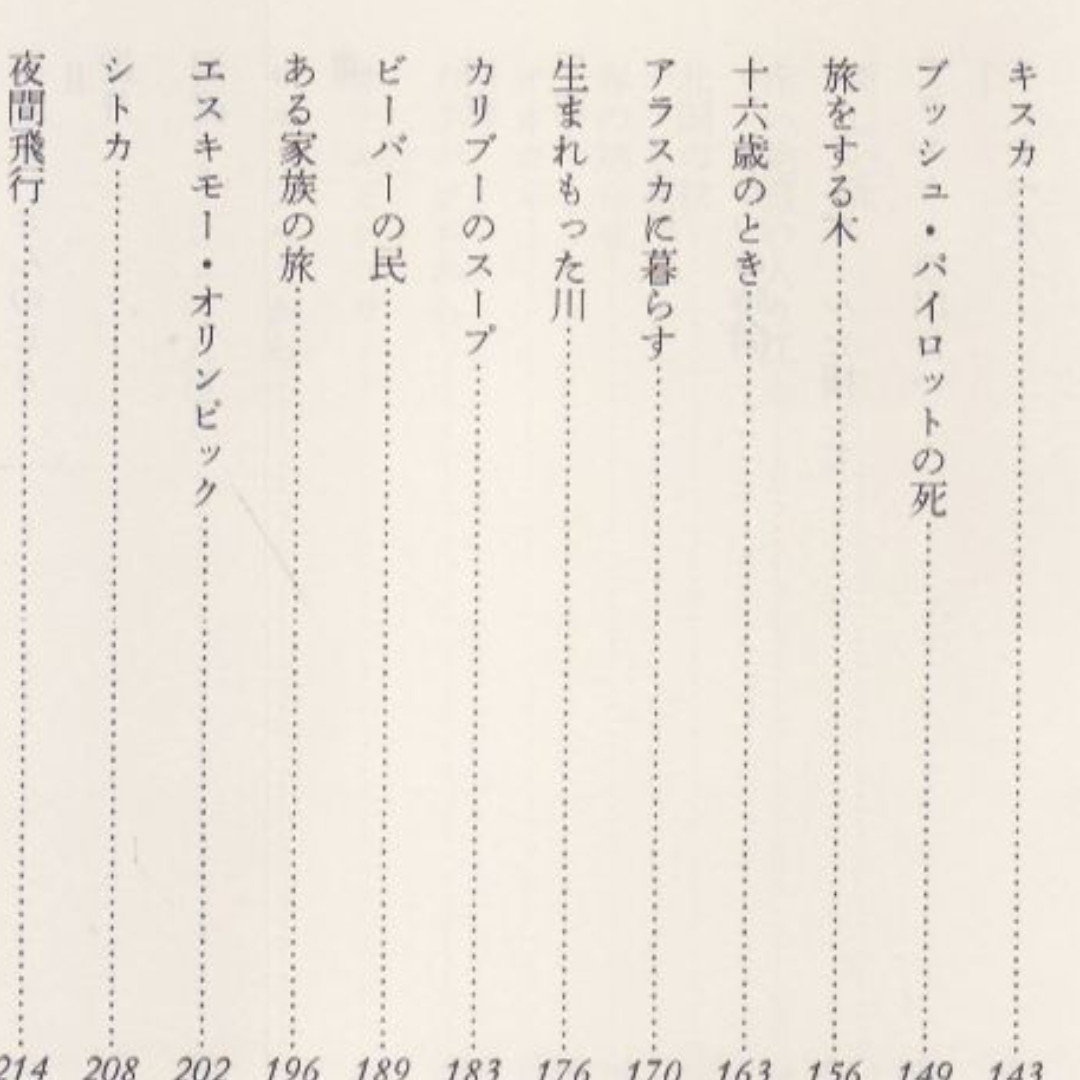 キスカ……143
ブッシュ・パイロットの死……149
旅をする木……156
十六歳のとき……163
アラスカに暮らす……170
生まれもった川……176
カリブーのスープ……183
ビーバーの民……189
ある家族の旅……196
エスキモー・オリンピック……202
シトカ……208
夜間飛行……214